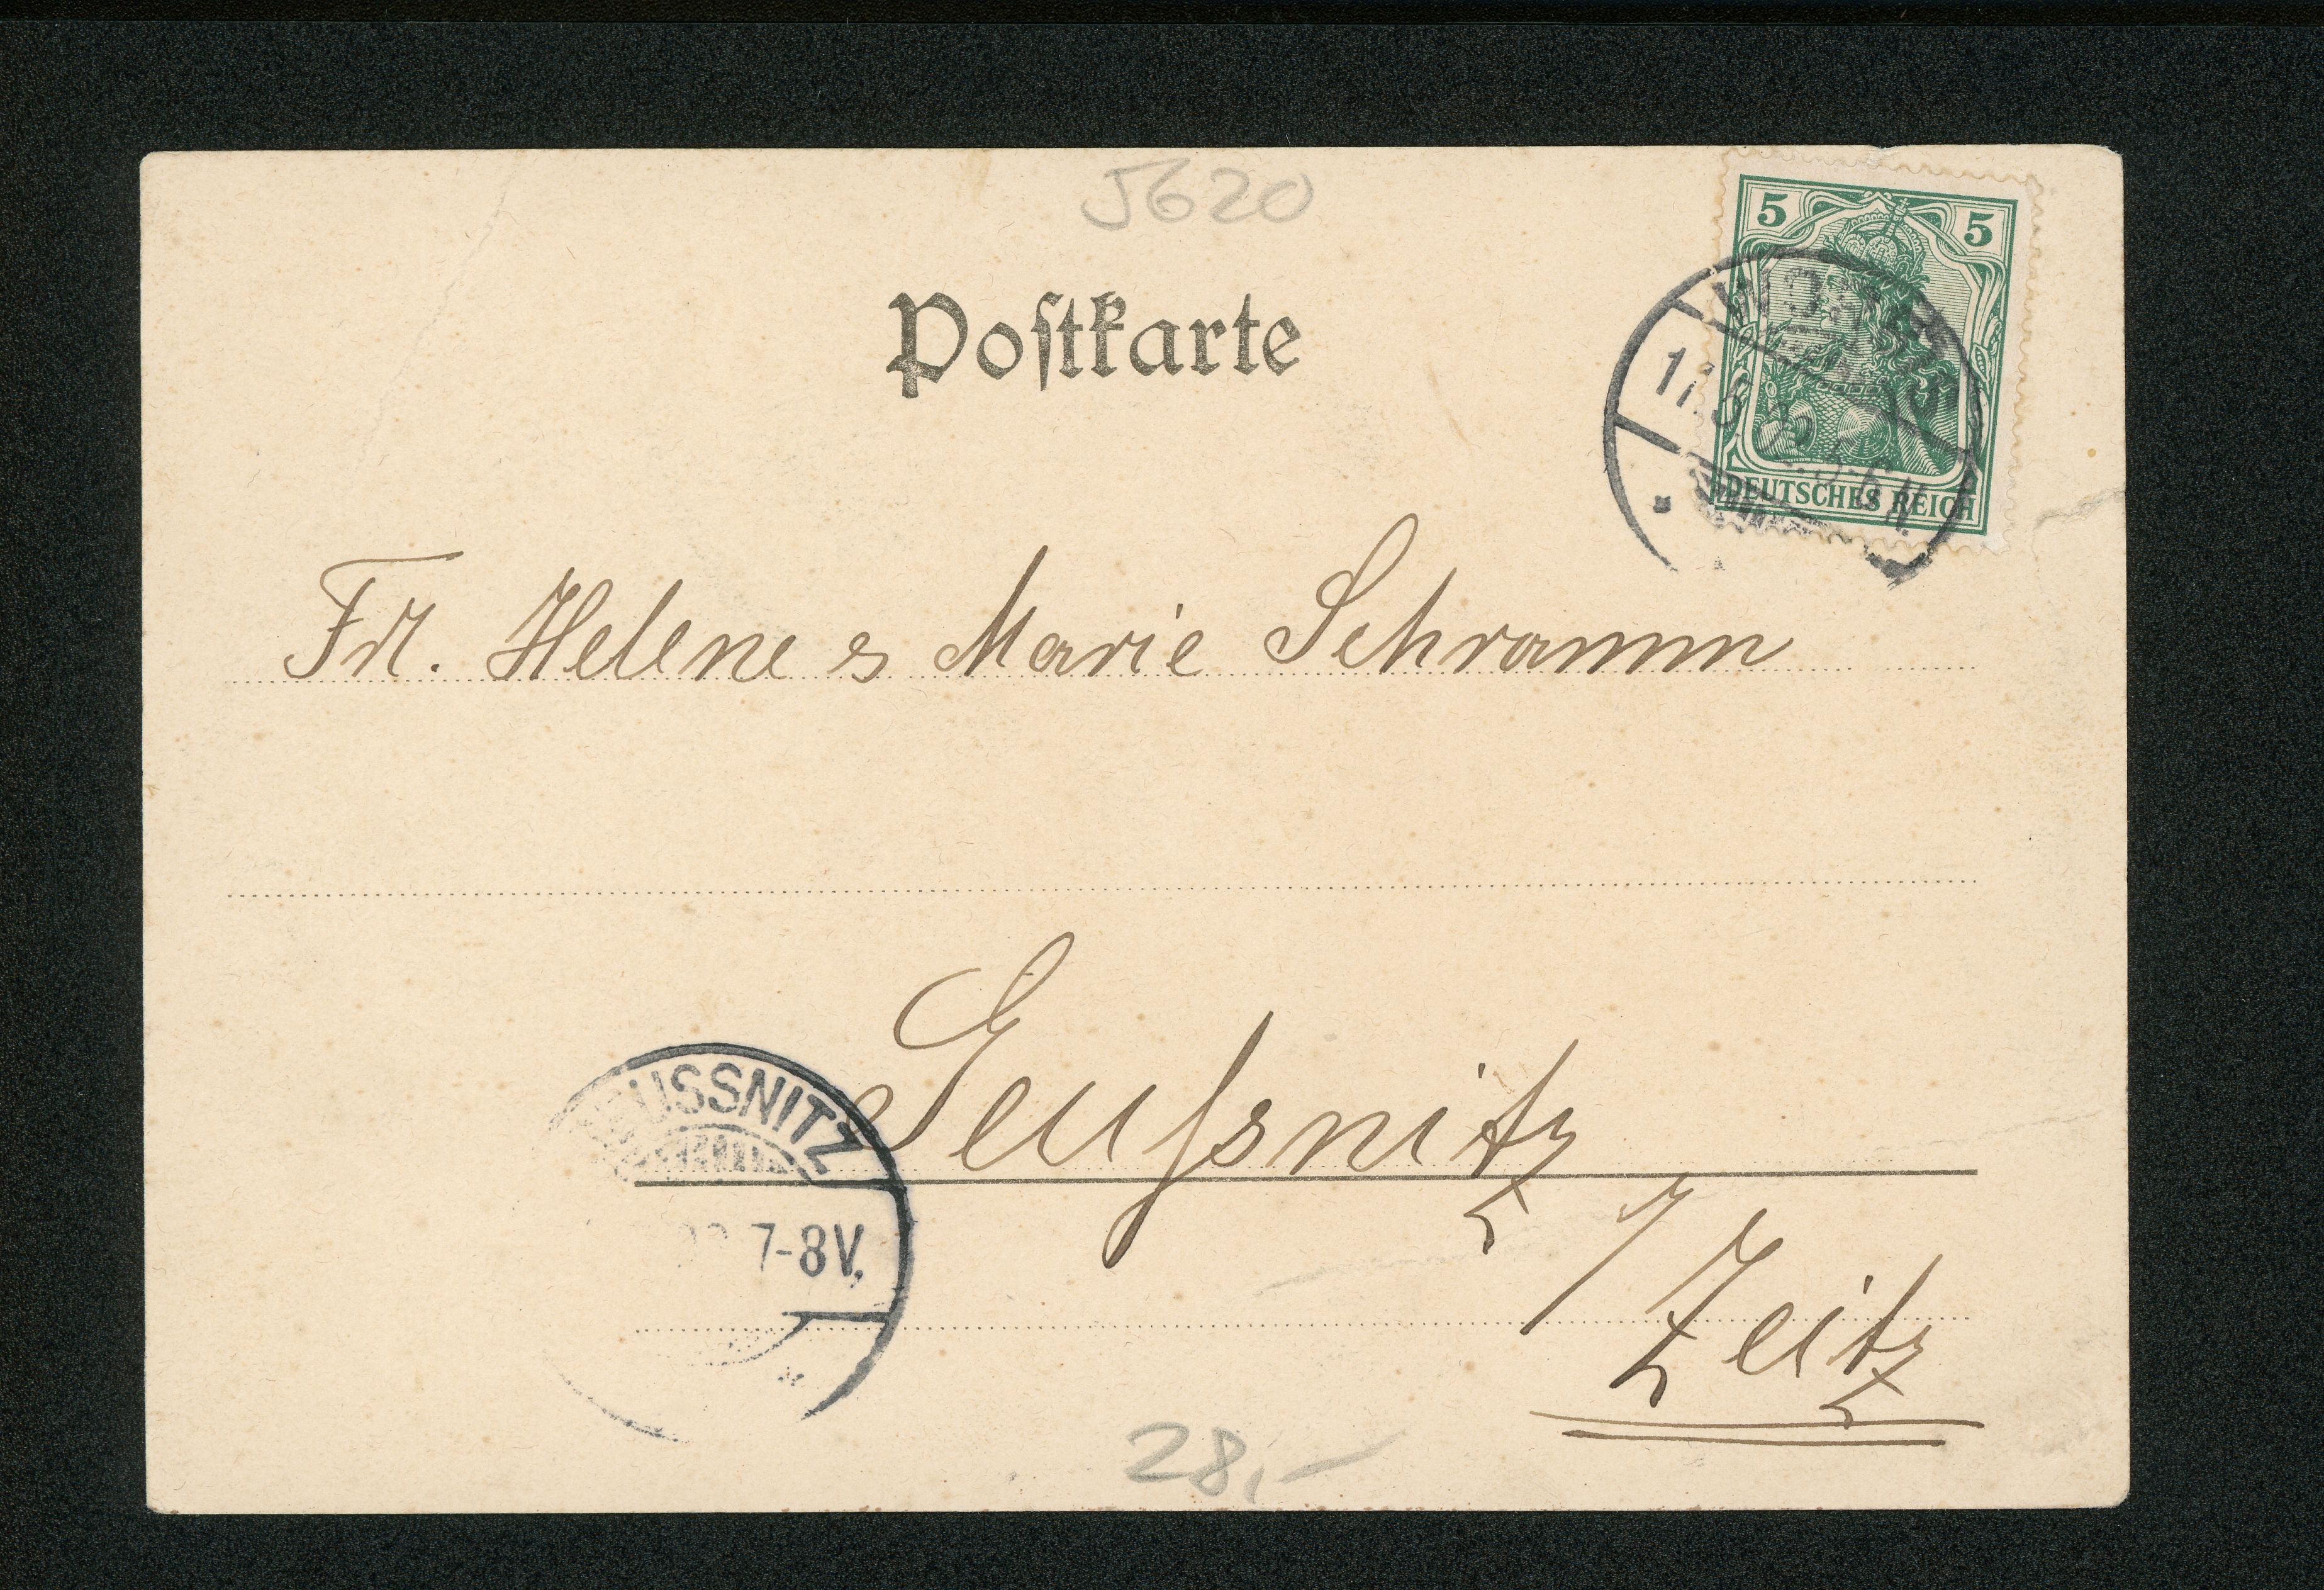 5620
Postkarte
5 5
DEUTSCHES REICH
Frl. Helene & Marie Schramm
Geußnitz
/ Zeitz
USSNITZ
7-8V.
28,-